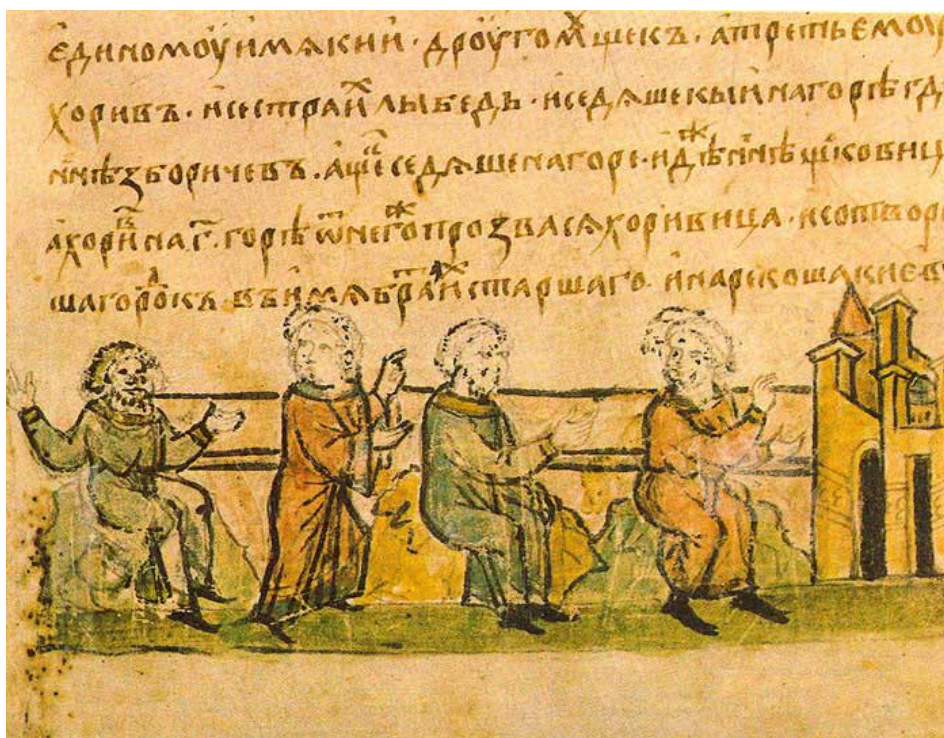 единомоуимѧкии · дроугомⷤ щекъ · атретьемоу
хоривъ · исестраиⷯ лыбедь · иседѧшекыинагорѣгд
нн҃ѣзборичевъ · ащⷭ҇еседѧшенагоре · идⷤѣнн҃ѣщ҃ковиц
ахориⷡ҇наг҃ · горѣѿнегоⷤпрозвасѧхоривица · исотвор
шагороⷣ҇къ · въимѧбраⷮ҇иⷯстаршаго · инарекошакиев